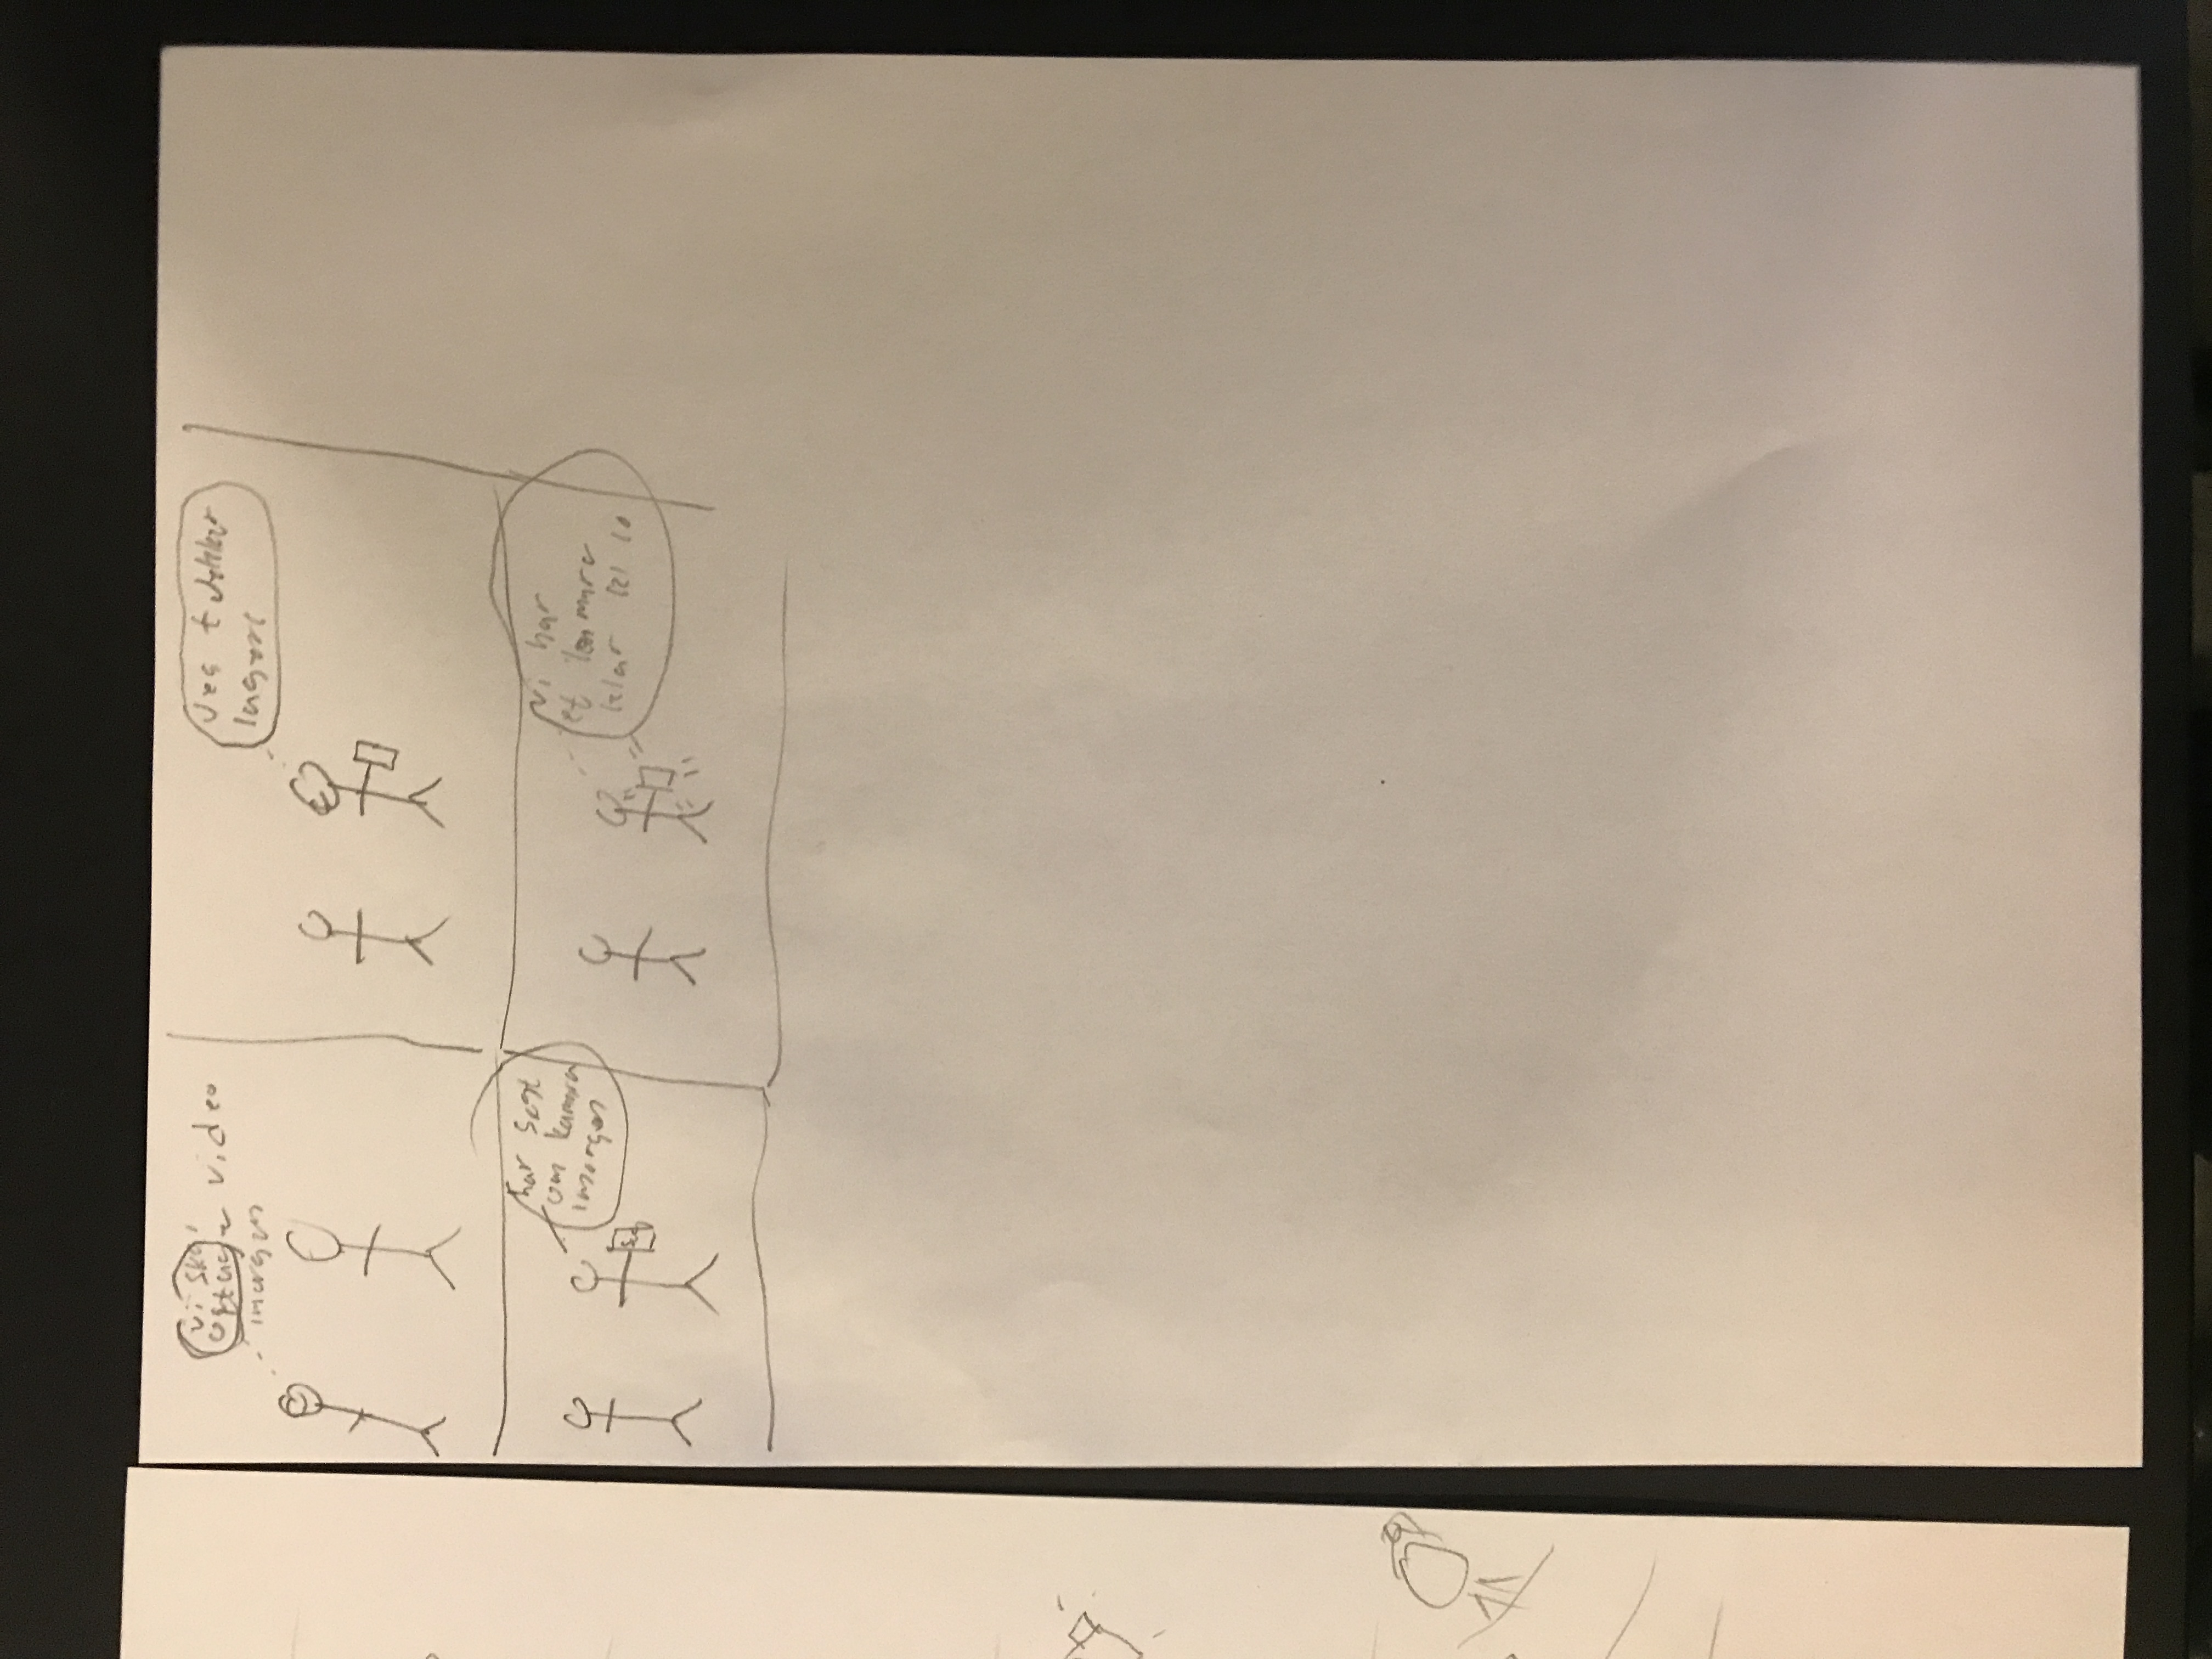 vi skal
optage video
imorgen
Jeg tjekker
lageret
har søgt
om kamera
imorgen
vi har
et kamera
klar kl 10